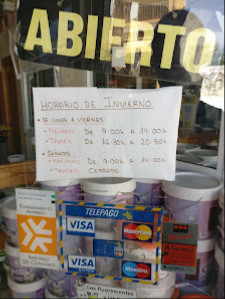 ABIERTO
HORARIO DE INVIERNO
• DE LUNES A VIERNES
- MAÑANAS DE 9:00h A 14:00h
- TARDES DE 16:30h A 20:30h
• SABADOS
- MAÑANAS DE 9:00h A 14:00h
- TARDES CERRADO
TELEPAGO
VISA
MasterCard
VISA
Maestro
Los fluorescentes